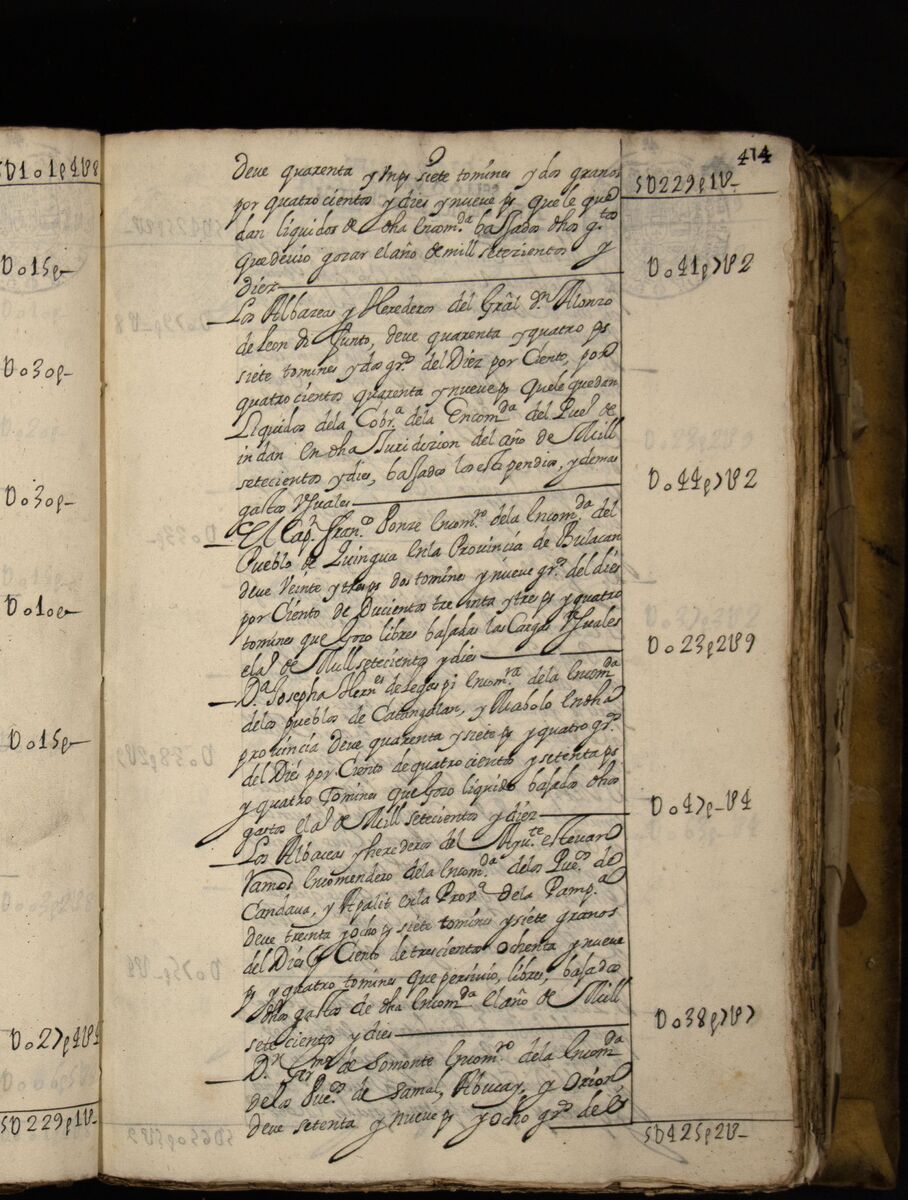 5U101p4U8
U015p-
U030p-
U030p-
U010p-
U015p-
U027p4U4
5U229p1U-
414
5U229p1U-
deve quarenta y un ps siete tomines y dos granos
por quatrocientos y dies y nueve ps que le que
dan liquidos de dha Encomda baſsados dhos gtos
que devio gozar el año de mill setezientos y
diez
U041p7U2
Los Albazeas y Herederos del Grãl Dn Alonzo
de Leon di funto, deve quarenta y quatro ps
siete tomines y dos grs del Diez por Ciento, por
quatro cientos quarenta y nueve ps que le quedan
Liquidos dela Cobra dela Encomda del Pueo de
indan en dha Juridizion del año de Mill
setecientos y dies, baſsados los estipendios, y demas
gastos Vsuales
U044p7U2
El Capn Frano Ponze Encomro dela Encomda del
Pueblo de Quingua en la Provincia de Bulacan
deve Veinte y tres ps dos tomines y nueve grs del dies
por Ciento de Ducientos treinta y tres ps y quatro
tomines que Gozo libres baſadas las Cargas Vsuales
el aº de Mill setecientos y dies
U023p2U9
Da Josepha Hernes de Legaspi Encomra dela Encomda
delos pueblos de Catangalan, y Mabolo En dha
provincia deve quarenta y siete ps y quatro grs
del Dies por Ciento de quatro cientos y setenta ps
y quatro Tomines que Gozo liquidos baſados dhos
gastos el aº de Mill setecientos y diez
U047p-U4
Los Albaceas y herederos del Ayute estevan
Ramos Encomendero dela Encomda delos Pueos de
Candava, y Apalit en la Prova dela Pampa
deve treinta y ocho ps y siete tomines y siete granos
del Dies p Ciento de trescientos ochenta y nueve
ps y quatro tomines que persivio, libres, baſados
dhos gastos de dha Encomda el año de Mill
sete cientos y dies
U038p7U7
Dn Germo de Somonte Encomro dela Encomda
delos Pueos de Samal, Abucay, y Orion
deve setenta y nueve ps y ocho grs del
5U425p2U-